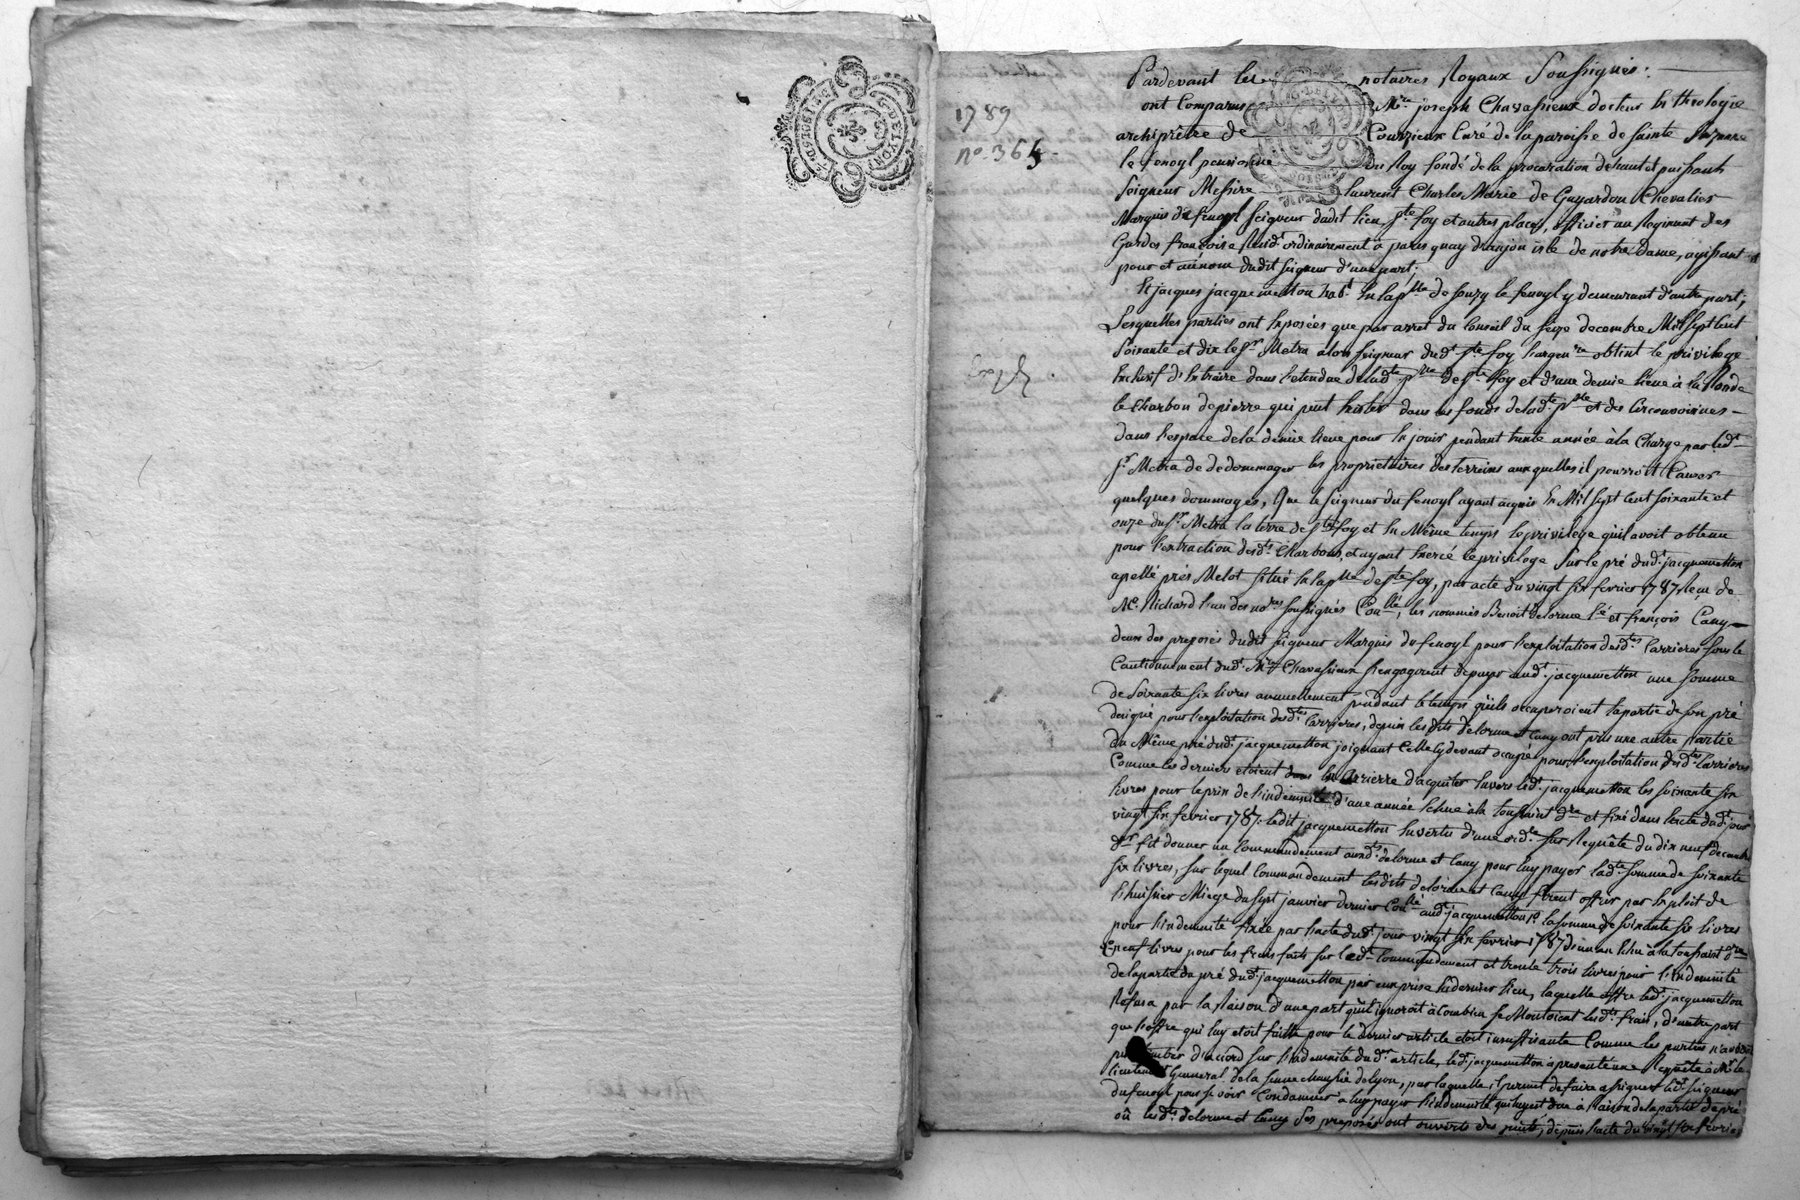 1789
n.o 365
Pardevant les notaires Royaux Soussignés :
ont Comparus Mre joseph Chavassieux docteur En theologie
archiprêtre de Courzieux Curé de la paroisse de Sainte
le fenoyl pensionne du Roy fondé de la procuration de haut et puissant
Seigneur Messire laurent Charles Marie de Guyardon Chevalier
Marquis de fenoyl Seigneur dudit lieu, Ste foy et autres places, officier au Regiment des
Gardes françoise Resid.t ordinairement à paris quay d'anjou isle de notre Dame, agissant
pour et au nom dudit Seigneur d'une part ;
Et jacques jacquemetton hab.t En la plle de Souzy le fenoyl y demeurant d'autre part ;
Lesquelles parties ont Exposées que par arret du Conseil du seize decembre Mil Sept Cent
Soixante et dix le Sr Metra alors Seigneur dud.t Ste foy Largen.re obtint le privilege
Exclusif d'Extraire dans l'etendue de lad.te p.sse de Ste foy et d'une demie lieue à la Ronde
le Charbon de pierre qui peut Exister dans les fonds de lad.te p.sse et des Circonvoisines
dans l'espace de la demie lieue pour En jouir pendant trente année à la Charge par led.t
Sr Metra de dedommager les proprietaires des terreins auxquelles il pourroit Causer
quelques dommages, Que le Seigneur du fenoyl ayant acquis En Mil Sept Cent Soixante et
onze du Sr Metra la terre de Ste foy et En Même temps le privilege qu'il avoit obtenu
pour l'extraction desd.ts Charbons, et ayant Exercé le privilege Sur le pré dud.t jacquemetton
apellé prés Melot Situé En la plle de Ste foy, par acte du vingt Six fevrier 1787 Reçu de
Me Richard L'un des no.res Soussignés Con.llé, les nommés Benoit Delorme L.é et françois Cany
deux des preposés dudit Seigneur Marquis du fenoyl pour l'exploitation desd.tes Carrieres Sous le
Cautionnement dud.t Mre Chavassieux S'engagerent de payer aud.t jacquemetton une Somme
de Soixante Six livres annuellement pendant le temps qu'ils occuperoient la partie de Son pré
designé pour l'exploitation desd.tes Carrieres, depuis les dits Delorme et Cany ont pris une autre Partie
du Même pré dud.t jacquemetton joignant Celle Cy devant occupée pour l'exploitation desd.tes Carrieres
Comme les derniers etoient dans En Arrierre d'acquiter Envers led.t jacquemetton les Soixante Six
livres pour le prix de l'indemnité d'une année Echue à la toussaint d.re et fixé dans l'acte dud.t jour
vingt Six fevrier 1787. ledit jacquemetton En vertu d'une ord.ce Sur Requête du dix neuf decembre
d.er fit donner un Commendement auxd.ts delorme et Cany pour luy payer lad.te Somme de Soixante
Six livres, Sur lequel Commandement lesdits delorme et Cany firent offrir par Exploit de
L'huissier Miege du Sept janvier dernier Con.llé aud.t jacquemetton 1o la Somme de Soixante Six livres
pour l'indemnité fixée par l'acte dud.t jour vingt Six fevrier 1787 d'un an Echu à la toussaint d.re
neuf livres pour les frais faits Sur led.t Commendement et trente trois livres pour l'indemnité
de la partie du pré dud.t jacquemetton par eux prise En dernier lieu, laquelle offre led.t jacquemetton
Refusa par la Raison d'une part qu'il ignoroit à Combien Se Montoient lesd.ts frais, d'autre part
que l'offre qui luy etoit faitte pour le dernier article etoit insuffisante Comme les parties n'avoient
pu tomber d'acord Sur l'indemnité dud.t article, led.t jacquemetton à presenté une Requête à Mr le
lieutenant General de la Senechaussée de Lyon, par laquelle il permit de faire assigner led.t Seigneur
du fenoyl pour Se voir Condamner a luy payer l'indemnité qui luy est due à Raison de la partie de pré
où lesd.ts delorme et Cany Ses preposés ont ouverts des puits, depuis l'acte du vingt Six fevrier